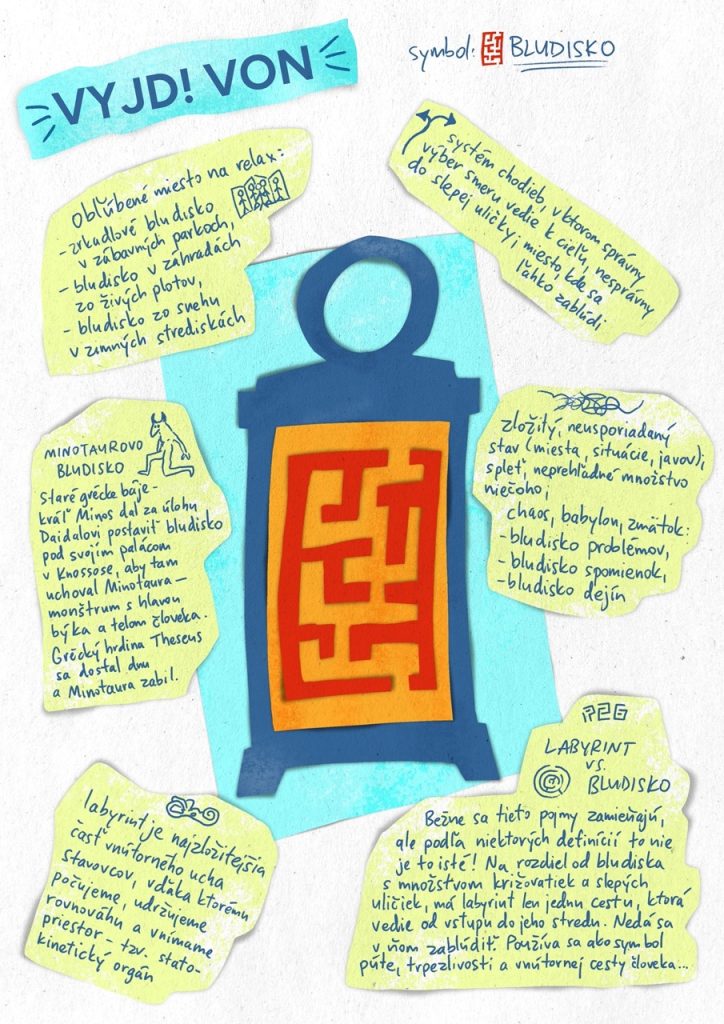 VYJD! VON
symbol: BLUDISKO
Obľúbené miesto na relax:
- zrkadlové bludisko
v zábavných parkoch,
- bludisko v záhradách
zo živých plotov,
- bludisko zo snehu
v zimných strediskách
systém chodieb, v ktorom správny
výber smeru vedie k cieľu, nesprávny
do slepej uličky; miesto, kde sa
ľahko zablúdi
MINOTAUROVO
BLUDISKO
Staré grécke báje -
kráľ Minos dal za úlohu
Daidalovi postaviť bludisko
pod svojím palácom
v Knossose, aby tam
uchoval Minotaura —
monštrum s hlavou
býka a telom človeka.
Grécky hrdina Theseus
sa dostal dnu
a Minotaura zabil.
zložitý, neusporiadaný
stav (miesta, situácie, javov);
spleť, neprehľadné množstvo
niečoho;
chaos, babylon, zmätok:
- bludisko problémov,
- bludisko spomienok,
- bludisko dejín
labyrint je najzložitejšia
časť vnútorného ucha
stavovcov, vďaka ktorému
počujeme, udržujeme
rovnováhu a vnímame
priestor - tzv. stato-
kinetický orgán
LABYRINT
vs.
BLUDISKO
Bežne sa tieto pojmy zamieňajú,
ale podľa niektorých definícií to nie
je to isté! Na rozdiel od bludiska
s množstvom križovatiek a slepých
uličiek, má labyrint len jednu cestu, ktorá
vedie od vstupu do jeho stredu. Nedá sa
v ňom zablúdiť. Používa sa ako symbol
púte, trpezlivosti a vnútornej cesty človeka...